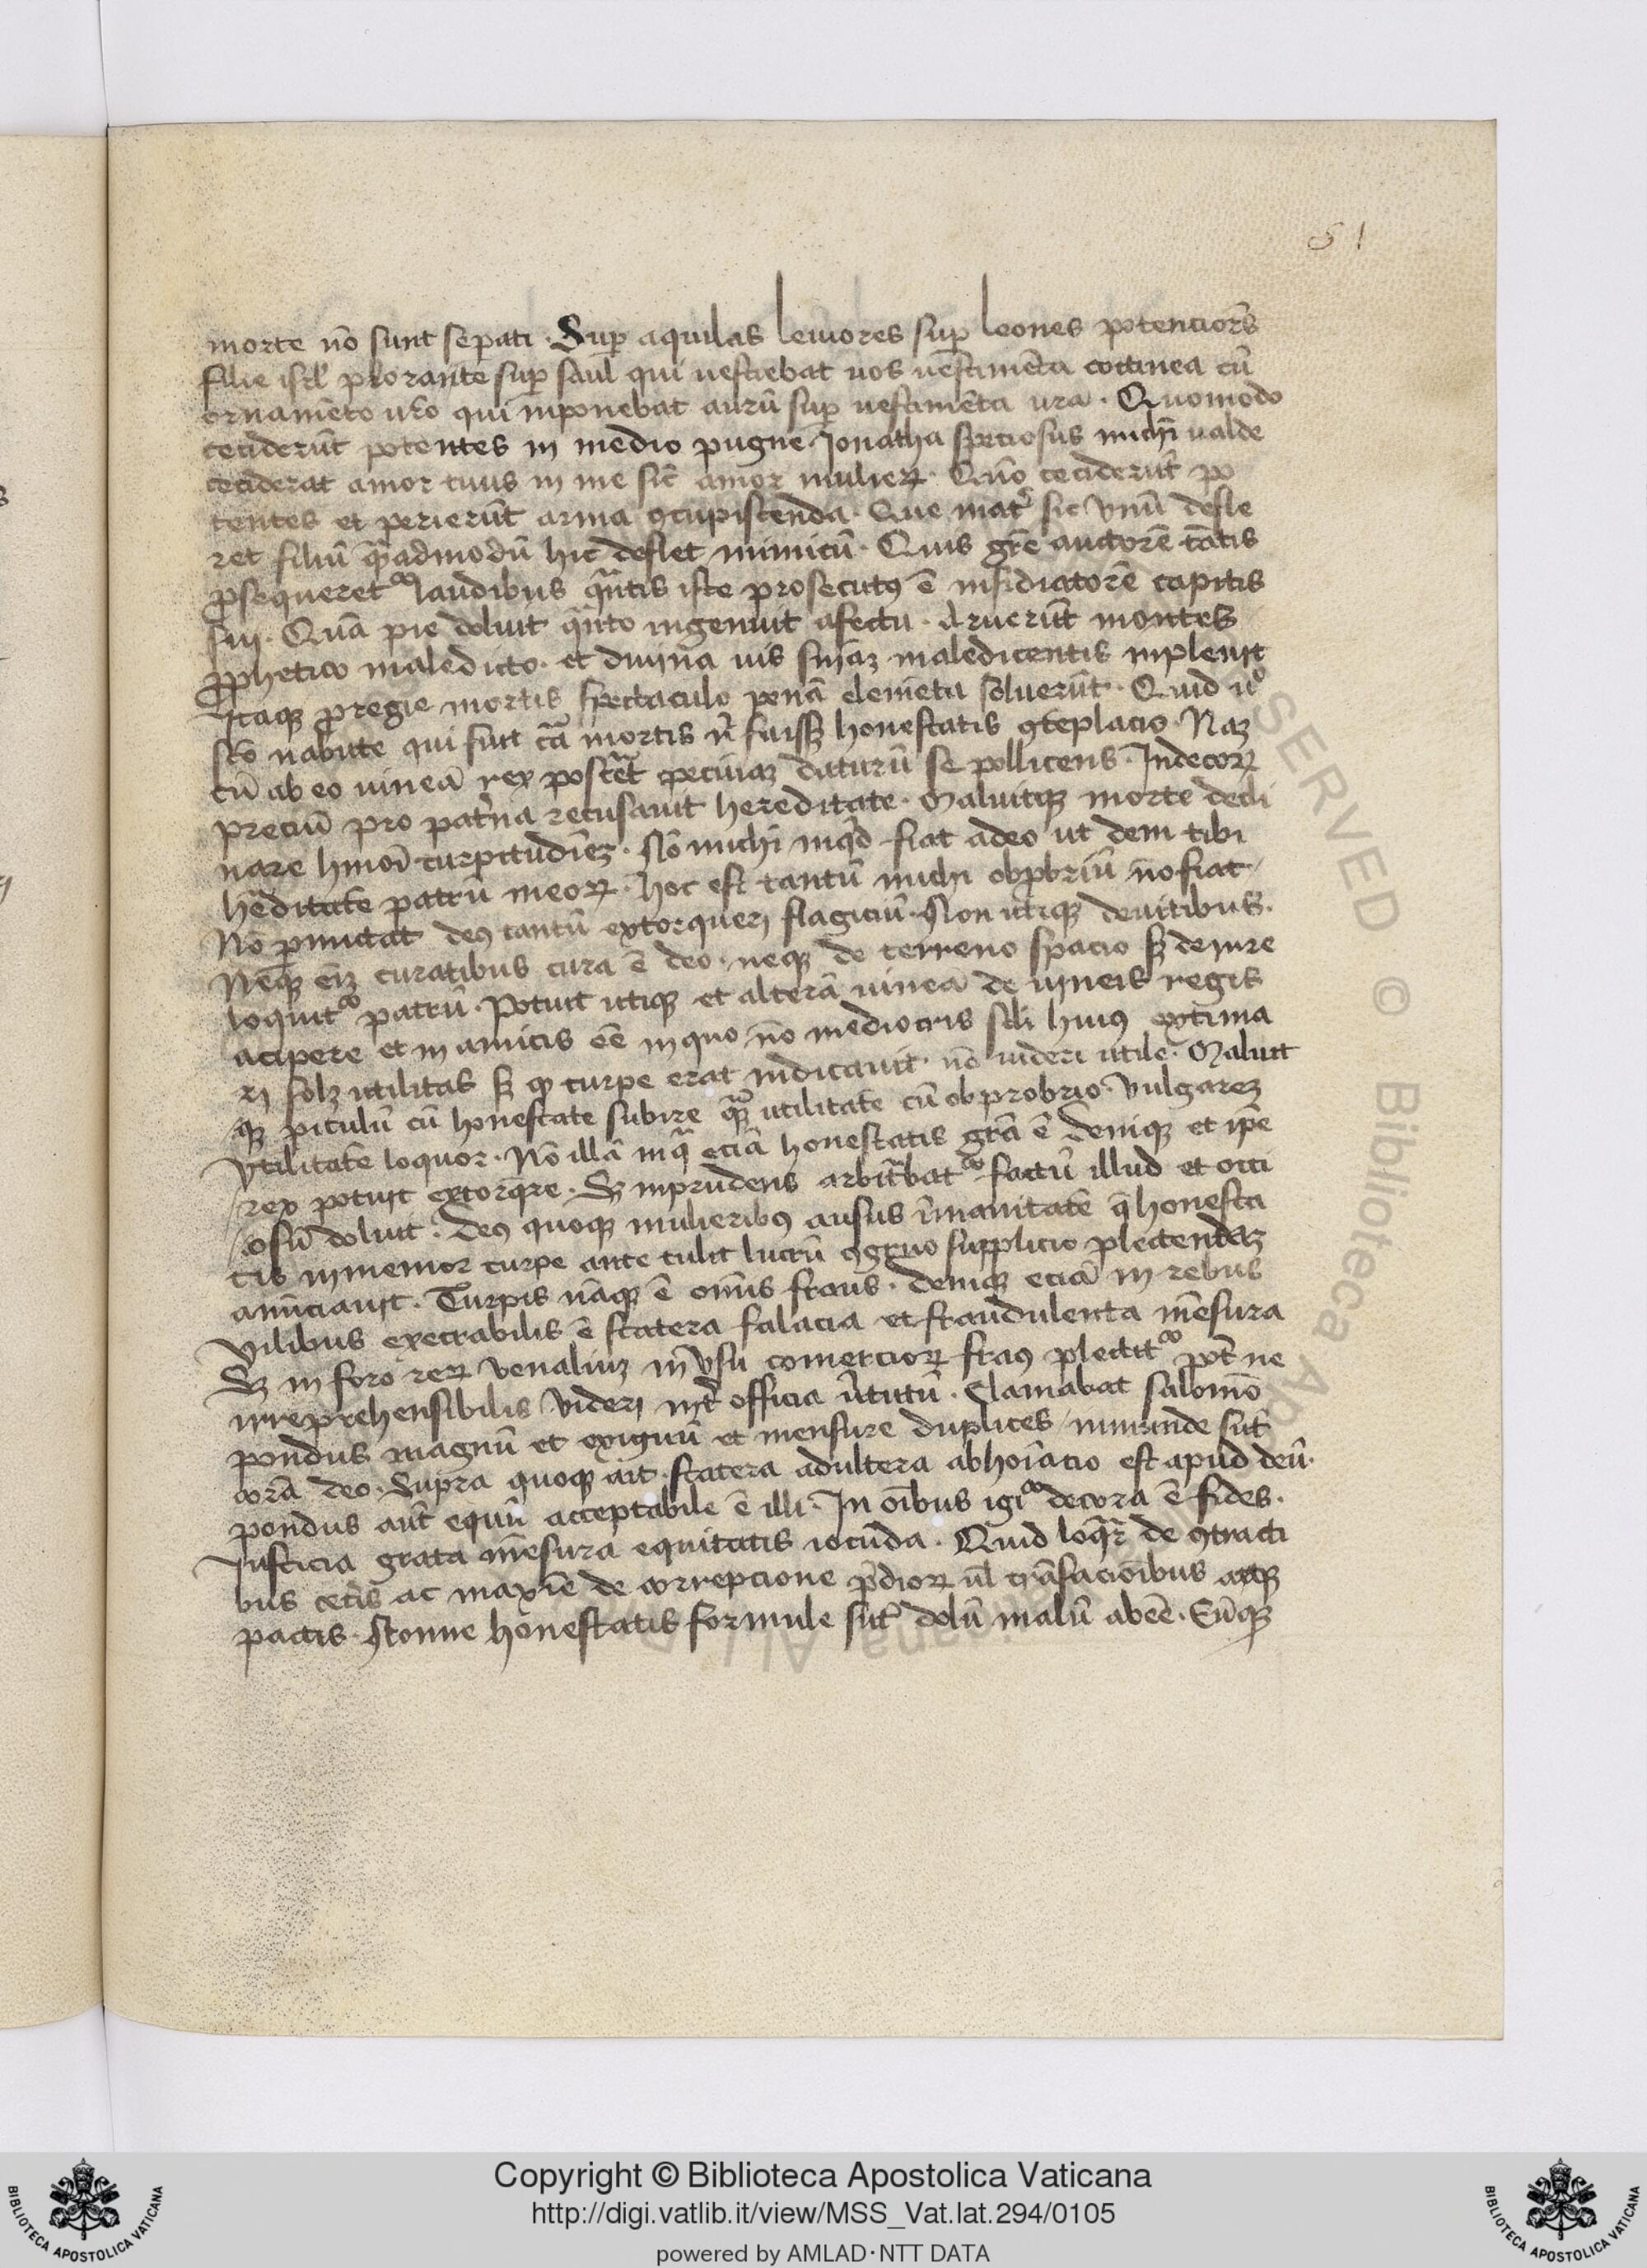 51
morte nō sunt sepati · Sup aquilas leuiores sup leones potenciors̄
filie isrl' plorante sup saul qui uestiebat uos uestimēta coccinea cū
ornamēto ur̄o qui inponebat aurū sup uestimēta ur̄a · Quomodo
ceciderūt potentes in medio pugne · Jonatha speciosus michi ualde
ceciderat amor tuus in me sic̄ amor mulieꝝ · Quō ceciderūt po
tentes et perierūt arma ꝯcupiscenda · Que mat̄ sic vnū defle
ret filiū q̄admodū hic deflet inimicū · Quis gr̄e auctorē tātis
ꝓsequeret᷑ laudibus qūtis iste prosecutꝰ ē insidiatorē capitis
sui · Quā pie doluit qūto ingemuit afectu · Aruerūt montes
ꝓphetico maledicto · et diuina uis sniāz maledicentis inpleuit
Itaqꝫ ꝓ regie mortis spectaculo penā elemēta soluerūt · Quid uͦ
sc̄o nabute qui fuit cā mortis n̄ fuissꝫ honestatis ꝯteplacio · Naꝫ
cū ab eo uineā rex posc̄et pecuiaꝫ daturū se pollicens · Indecoꝝ
preciū pro pat̄na recusauit hereditate · Maluitqꝫ morte decli
nare hmoī turpitudīeꝫ · Nō michi inqd fiat a deo ut dem tibi
hēditatē patrū meoꝝ · Hoc est tantū michi obpbriū nō fiat ·
Nō pmittat deꝰ tantū extorqueri flagiciū · Non utiqꝫ de uitibus ·
Neqꝫ eīꝫ curatibus cura ē deo · neqꝫ de terreno spacio sꝫ de iure
loquit᷑ patrū · Potuit utiqꝫ et alterā uineā de uineis regis
acipere et in amicis eē in quo nō mediocris sc̄li huiꝰ extima
ri solꝫ utilitas sꝫ qꝫ turpe erat indicauit · nō uideri utile · Maluit
qꝫ piculū cū honestate subire qꝫ utilitatē cū obprobrio · vulgareꝫ
vtilitatē loquor · Nō illā in q̄ eciā honestatis grā ē Deniqꝫ et ip̄e
rex potuit extorq̄re · Sꝫ inprudens arbit̄bat᷑ factū illud et occi
osū doluit · Deꝰ quoqꝫ mulieribꝰ ausus īmanitatē q̄ honesta
tis inmemor turpe ante tulit lucrū ꝯgruo supplicio plectendaꝫ
anūciauit · Turpis nāqꝫ ē omīs fraus · deniqꝫ eciā in rebus
vilibus execrabilis ē statera falacia et fraudulenta mēsura
Sꝫ in foro reꝝ venaliuꝫ in vsu comercioꝝ frauꝰ plectit᷑ pot̄ ne
irreprehensibilis videri int̄ officia ūtutū · Clamabat salomō
pondus magnū et exiguū et mensure duplices / inmūnde sūt
corā deo · Supra quoqꝫ ait · statera adultera abhoīatio est apud deū ·
pondus aūt equū acceptabile ē illi · In oībus igi᷑ decora ē fides ·
Iusticia grata mēsura equitatis iocūda · Quid loq̄r de ꝯtracti
bus cet̄is ac maxīe de correpcione p̄dioꝝ ul̄ trāsacionībus atqꝫ
pactis · Nonne honestatis formule sūt dolū malū abeē · Eūqꝫ
Copyright © Biblioteca Apostolica Vaticana
http://digi.vatlib.it/view/MSS_Vat.lat.294/0105
powered by AMLAD·NTT DATA